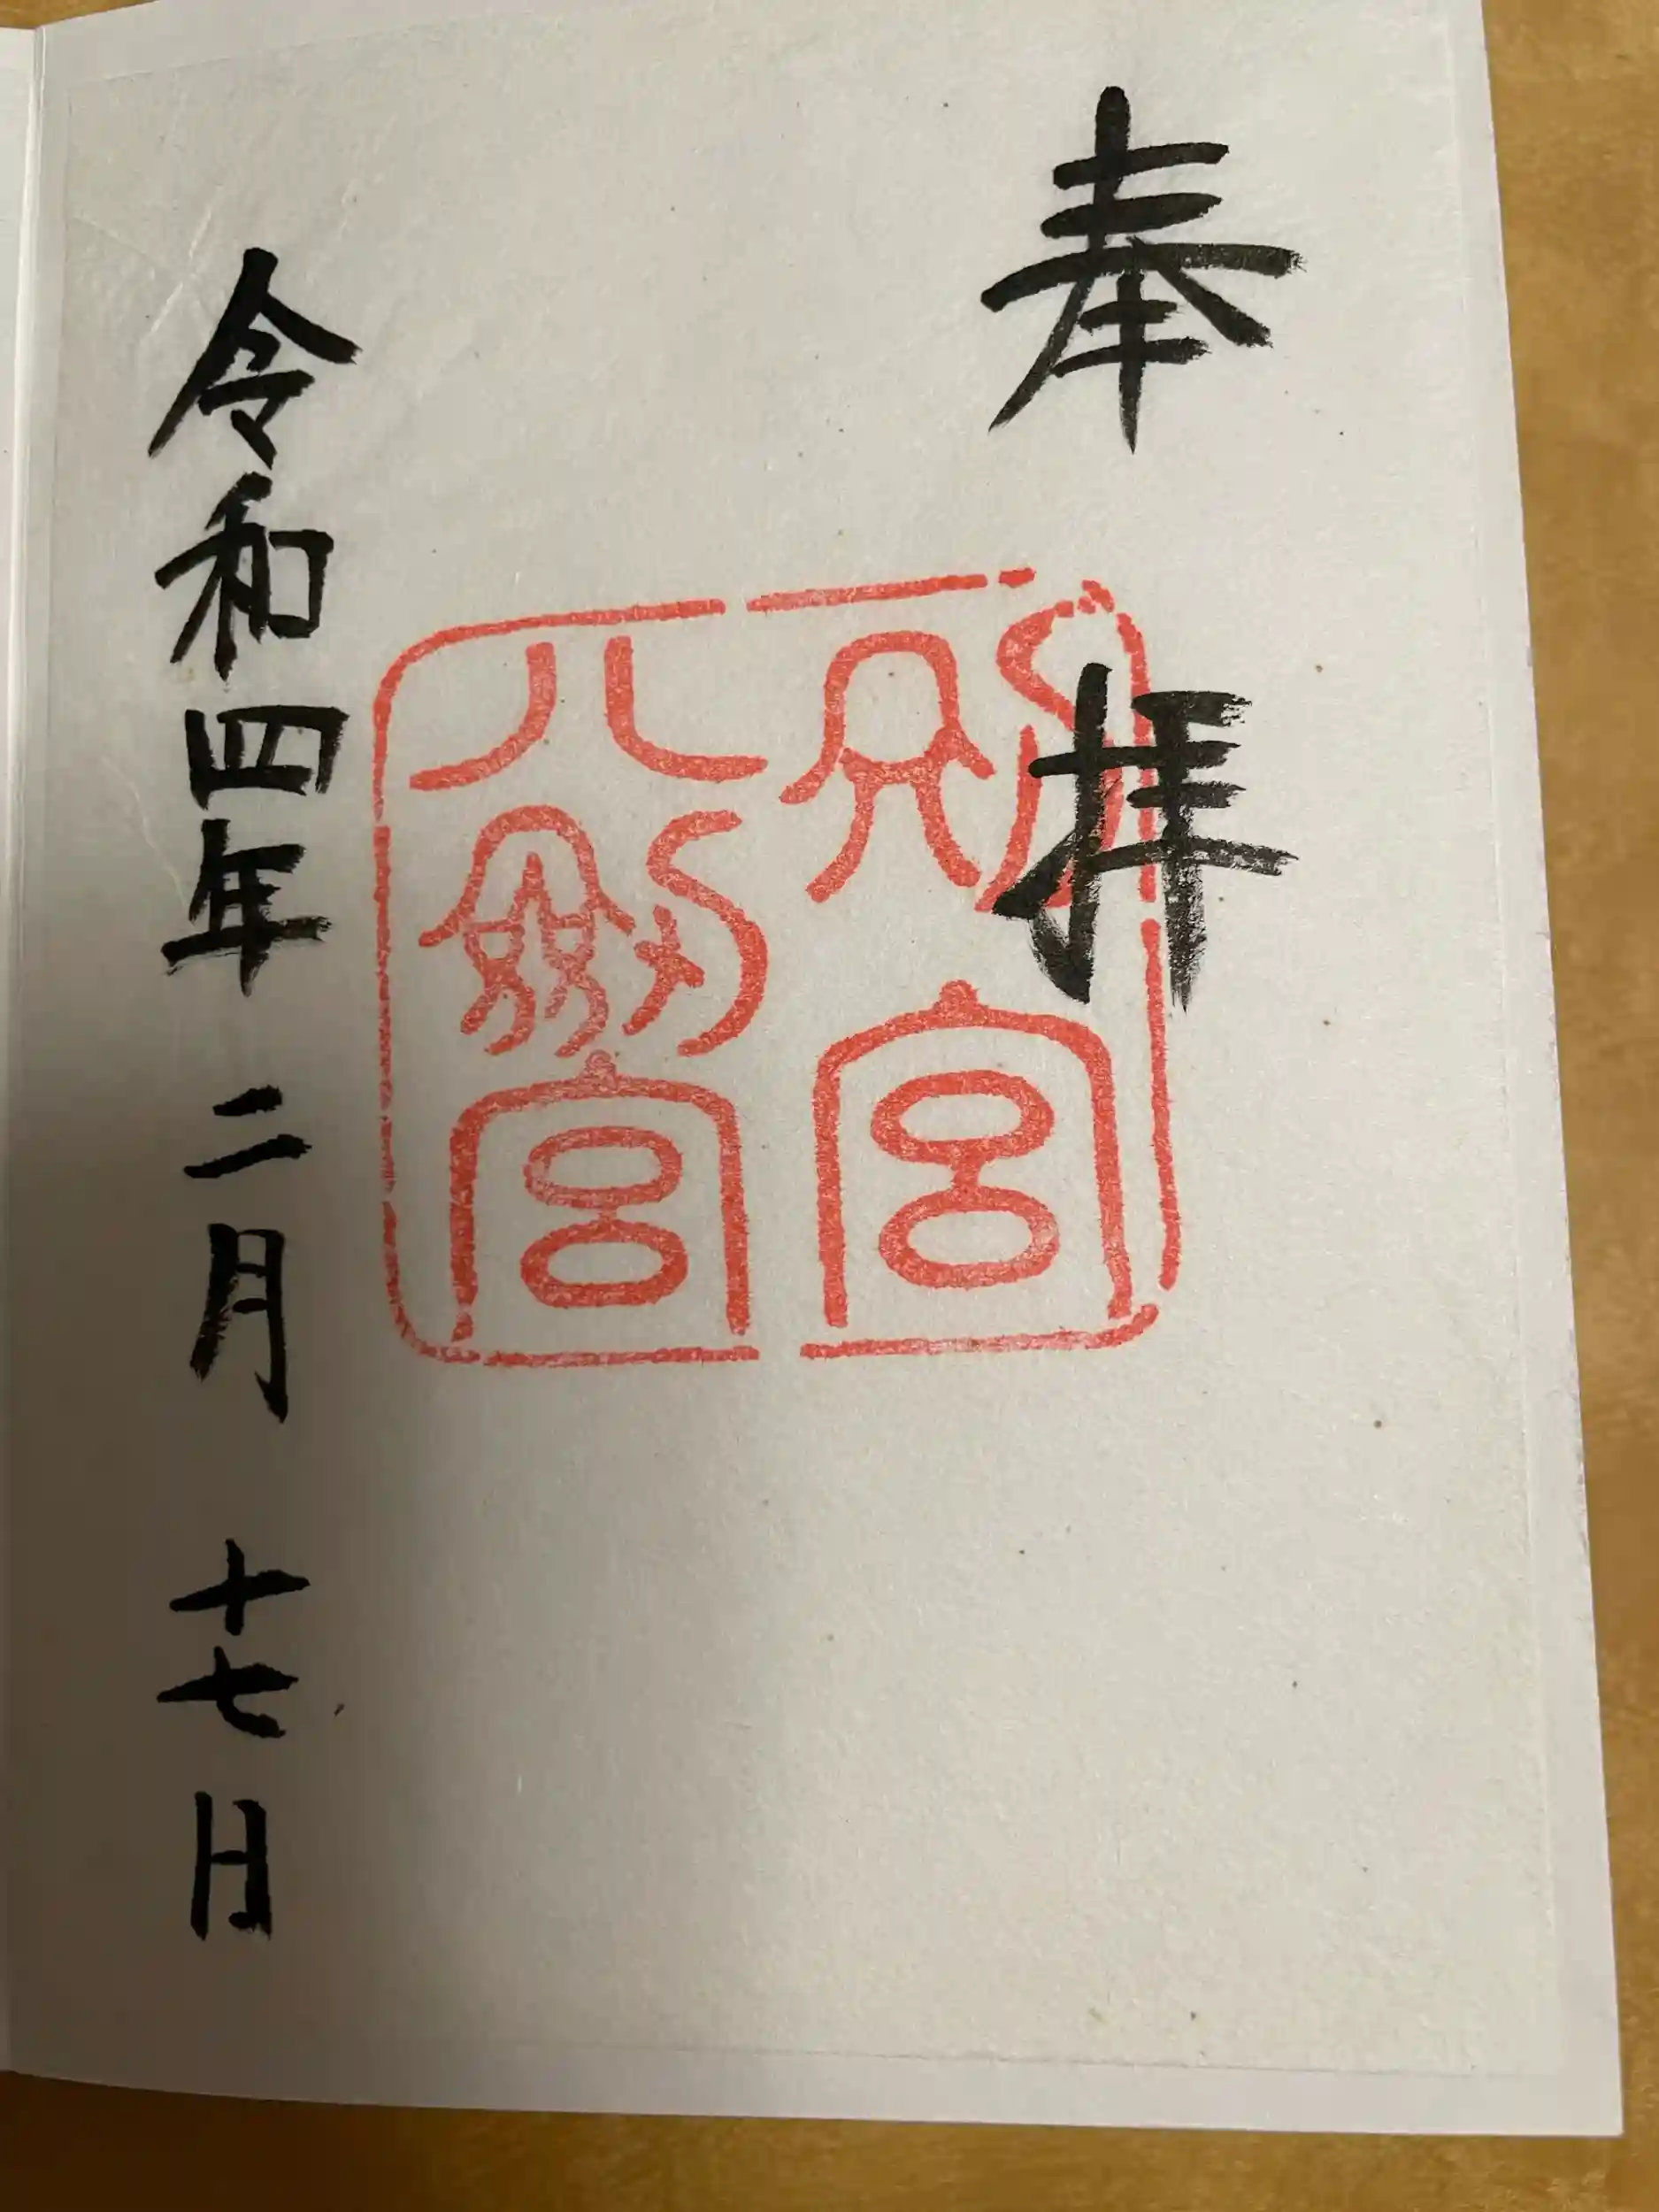 奉拝
別宮
八劔宮
令和四年二月十七日